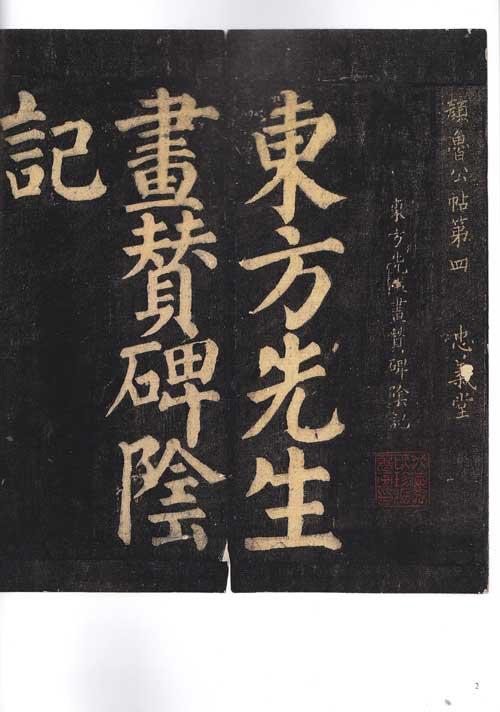 顏魯公帖第四 忠義堂
東方先生畫贊碑陰記
東方先生
畫贊碑陰
記
2